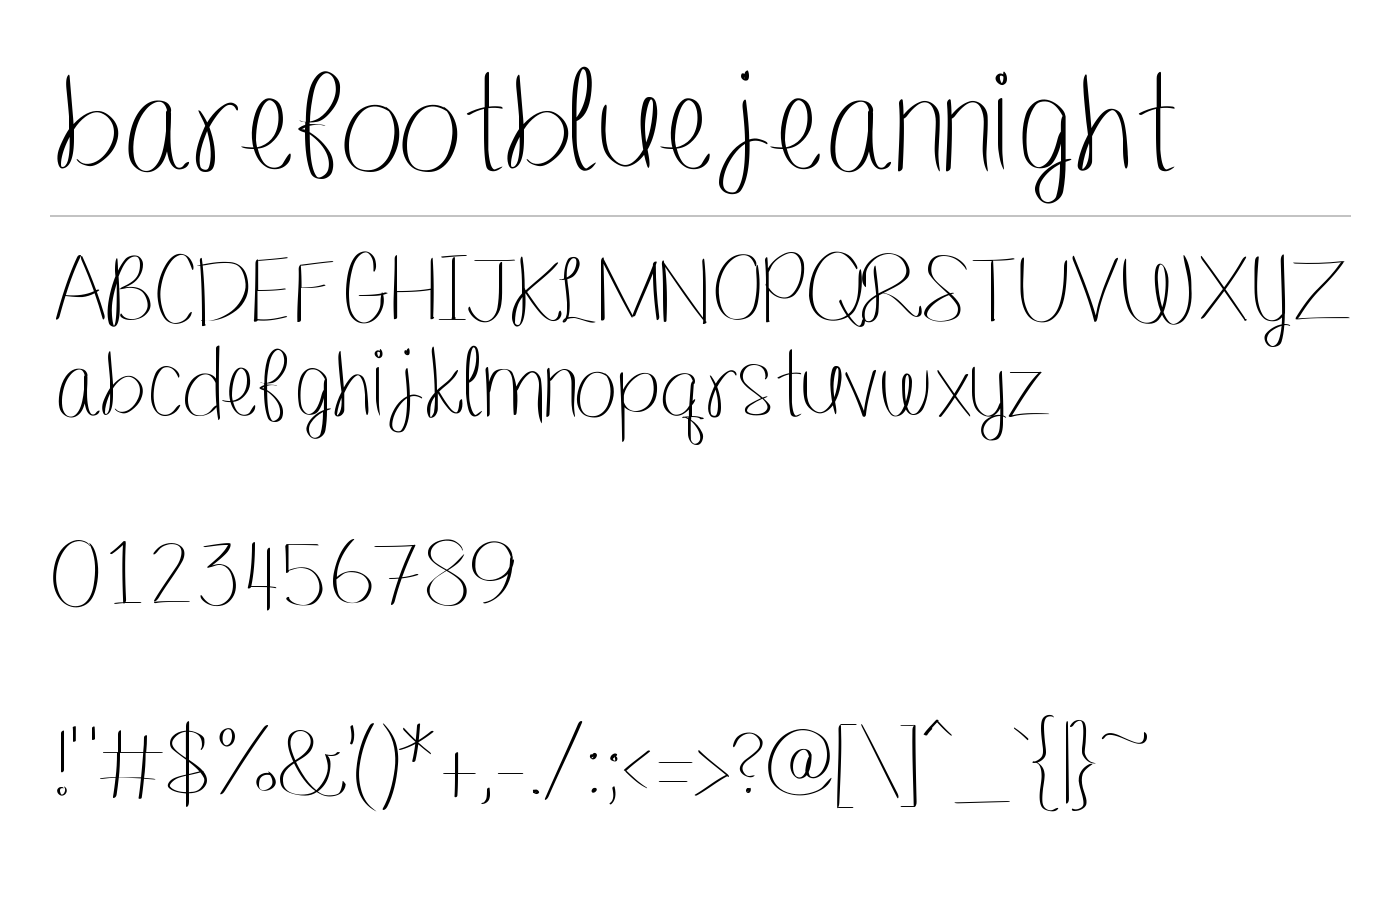 barefootbluejeannight
ABCDEFGHIJKLMNOPQRSTUVWXYZ
abcdefghijklmnopqrstuvwxyz
0123456789
!"#$%&'()*+,-./:;<=>?@[\]^_`{|}~